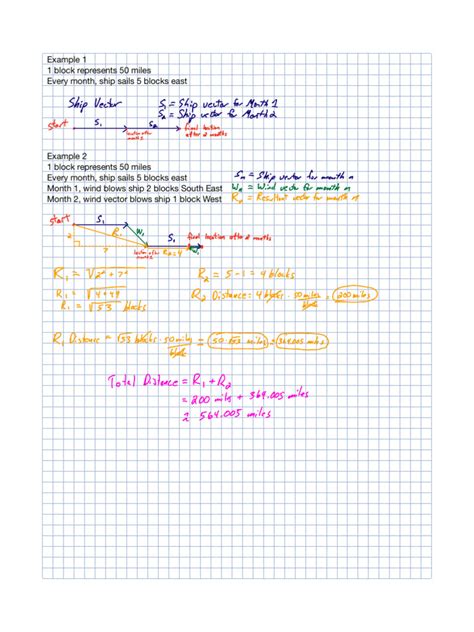 Example 1
1 block represents 50 miles
Every month, ship sails 5 blocks east
Ship Vector
S₁ = Ship vector for Month 1
S₂ = Ship vector for Month 2
start S₁ S₂ final location after 2 months
location after month 1
Example 2
1 block represents 50 miles
Every month, ship sails 5 blocks east
Month 1, wind blows ship 2 blocks South East
Month 2, wind vector blows ship 1 block West
Sₙ = Ship vector for month n
Wₙ = Wind vector for month n
Rₙ = Resultant vector for month n
start S₁
2 R₁ W₁ S₁ final location after 2 months
7 location after month 1 R₂ = 4
R₁ = √2² + 7²
R₂ = 5 - 1 = 4 blocks
R₁ = √4 + 49
R₁ = √53 blocks
R₂ Distance: 4 blocks · 50 miles/block = 200 miles
R₁ Distance = √53 blocks · 50 miles/block = 50√53 miles = 364.005 miles
Total Distance = R₁ + R₂
= 200 miles + 364.005 miles
≈ 564.005 miles